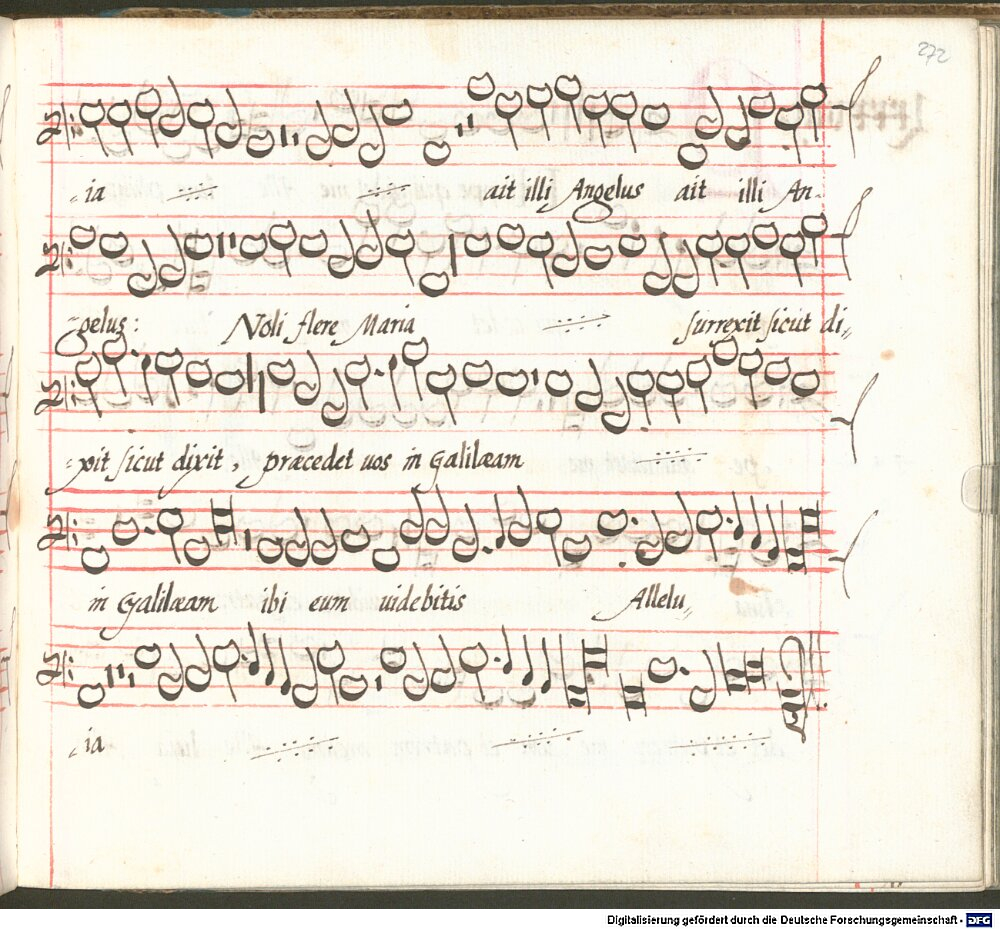 272
-ia ait illi Angelus ait illi An-
-gelus: Noli flere Maria surrexit sicut di-
-xit sicut dixit, præcedet uos in Galilæam
in Galilæam ibi eum uidebitis Allelu-
-ia
Digitalisierung gefördert durch die Deutsche Forschungsgemeinschaft - DFG